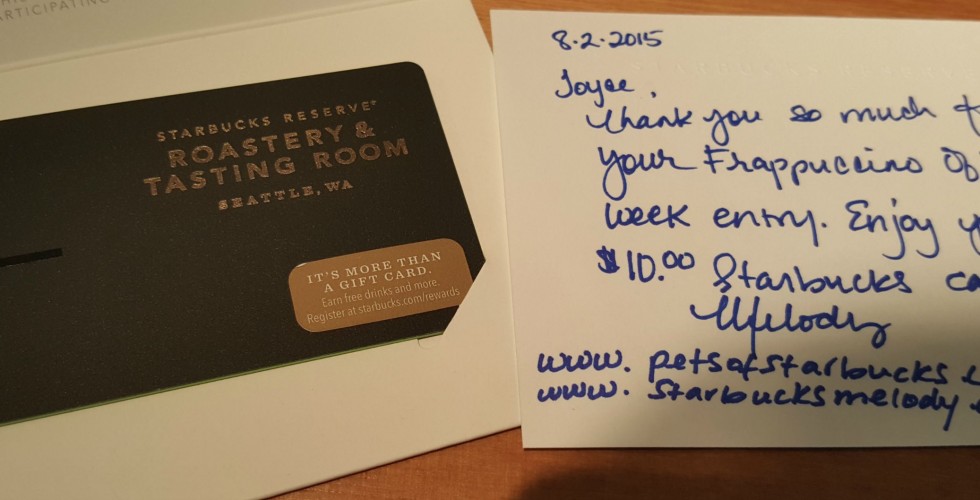 ARTICIPATING
STARBUCKS RESERVE®
ROASTERY &
TASTING ROOM
SEATTLE, WA
IT'S MORE THAN
A GIFT CARD.
Earn free drinks and more.
Register at starbucks.com/rewards
8.2.2015
Joyce,
Thank you so much f
your Frappuccino Of
week entry. Enjoy y
$10.00 Starbucks ca
Melody
www.petsofstarbucks
www.starbucksmelody